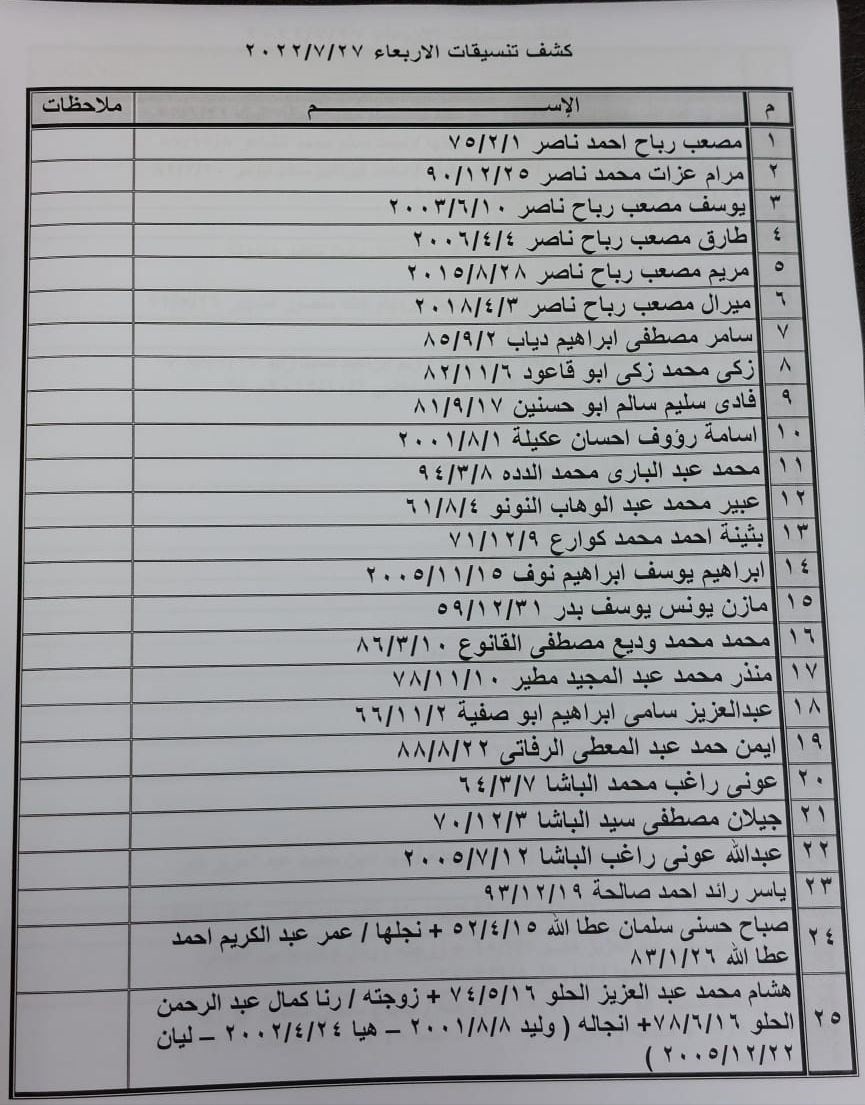 كشف تنسيقات الاربعاء ٢٠٢٢/٧/٢٧
م الإســـــــــــــــم ملاحظات
١ مصعب رباح احمد ناصر ٧٥/٢/١
٢ مرام عزات محمد ناصر ٩٠/١٢/٢٥
٣ يوسف مصعب رباح ناصر ٢٠٠٣/٦/١٠
٤ طارق مصعب رباح ناصر ٢٠٠٦/٤/٤
٥ مريم مصعب رباح ناصر ٢٠١٥/٨/٢٨
٦ ميرال مصعب رباح ناصر ٢٠١٨/٤/٣
٧ سامر مصطفى ابراهيم دياب ٨٥/٩/٢
٨ زكى محمد زكى ابو قاعود ٨٢/١١/٦
٩ فادى سليم سالم ابو حسنين ٨١/٩/١٧
١٠ اسامة رؤوف احسان عكيلة ٢٠٠١/٨/١
١١ محمد عبد البارى محمد الدده ٩٤/٣/٨
١٢ عبير محمد عبد الوهاب النونو ٦١/٨/٤
١٣ بثينة احمد محمد كوارع ٧١/١٢/٩
١٤ ابراهيم يوسف ابراهيم نوف ٢٠٠٥/١١/١٥
١٥ مازن يونس يوسف بدر ٥٩/١٢/٣١
١٦ محمد محمد وديع مصطفى القانوع ٨٦/٣/١٠
١٧ منذر محمد عبد المجيد مطير ٧٨/١١/١٠
١٨ عبدالعزيز سامى ابراهيم ابو صفية ٦٦/١١/٢
١٩ ايمن حمد عبد المعطى الرفاتى ٨٨/٨/٢٢
٢٠ عونى راغب محمد الباشا ٦٤/٣/٧
٢١ جيلان مصطفى سيد الباشا ٧٠/١٢/٣
٢٢ عبدالله عونى راغب الباشا ٢٠٠٥/٧/١٢
٢٣ ياسر رائد احمد صالحة ٩٣/١٢/١٩
٢٤ صباح حسنى سلمان عطا الله ٥٢/٤/١٥ + نجلها / عمر عبد الكريم احمد
عطا الله ٨٣/١/٢٦
٢٥ هشام محمد عبد العزيز الحلو ٧٤/٥/١٦ + زوجته / رنا كمال عبد الرحمن
الحلو ٧٨/٦/١٦+ انجاله ( وليد ٢٠٠١/٨/٨ – هيا ٢٠٠٢/٤/٢٤ – ليان
٢٠٠٥/١٢/٢٢ )